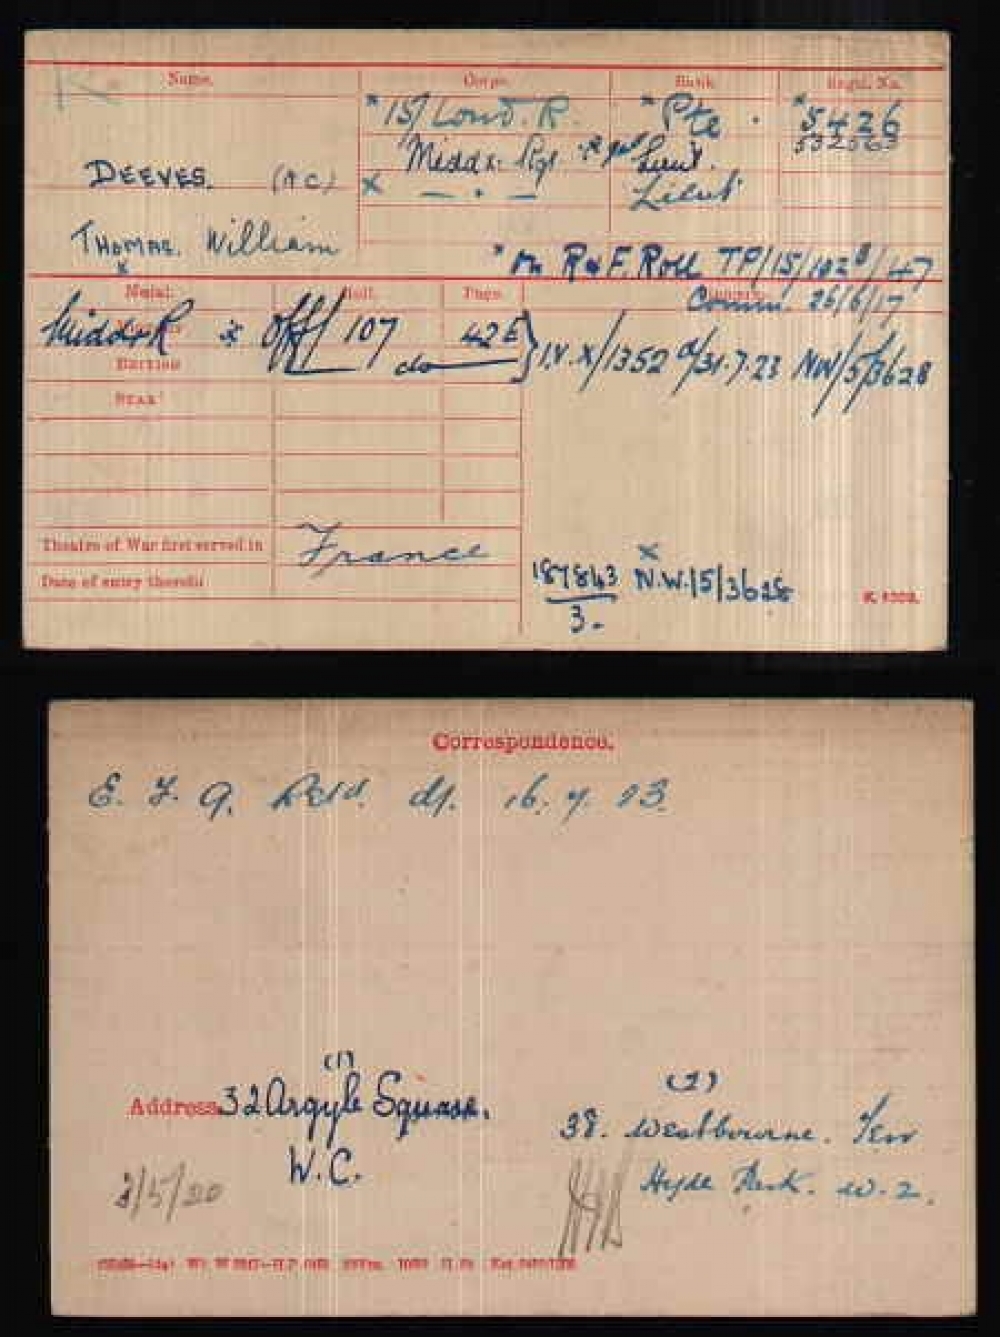 Name. Corps. Rank. Regtl. No.
* 15/Lond. R. * Pte. * 5426
532563
DEEVES. (A C) Middx. Rgt. Lieut.
x — " — Lieut
THOMAS. William
x
* on R & F. Roll TP/15/102B/47
Medal. Roll. Page.
Comm. 26/6/17
Middx R * Off/107 42E } I.V.X/1352 d/31.7.23 NW/5/3628
do
BRITISH
STAR
Theatre of War first served in France
Date of entry therein
x
187843 N.W./5/3628
3.
K. 1380.
Correspondence.
E. F. 9. Retd. dt. 16. 7. 23.
(1)
Address. 32 Argyle Square.
W.C.
(2)
38. Westbourne. Terr
Hyde Park. W. 2.
3/5/20